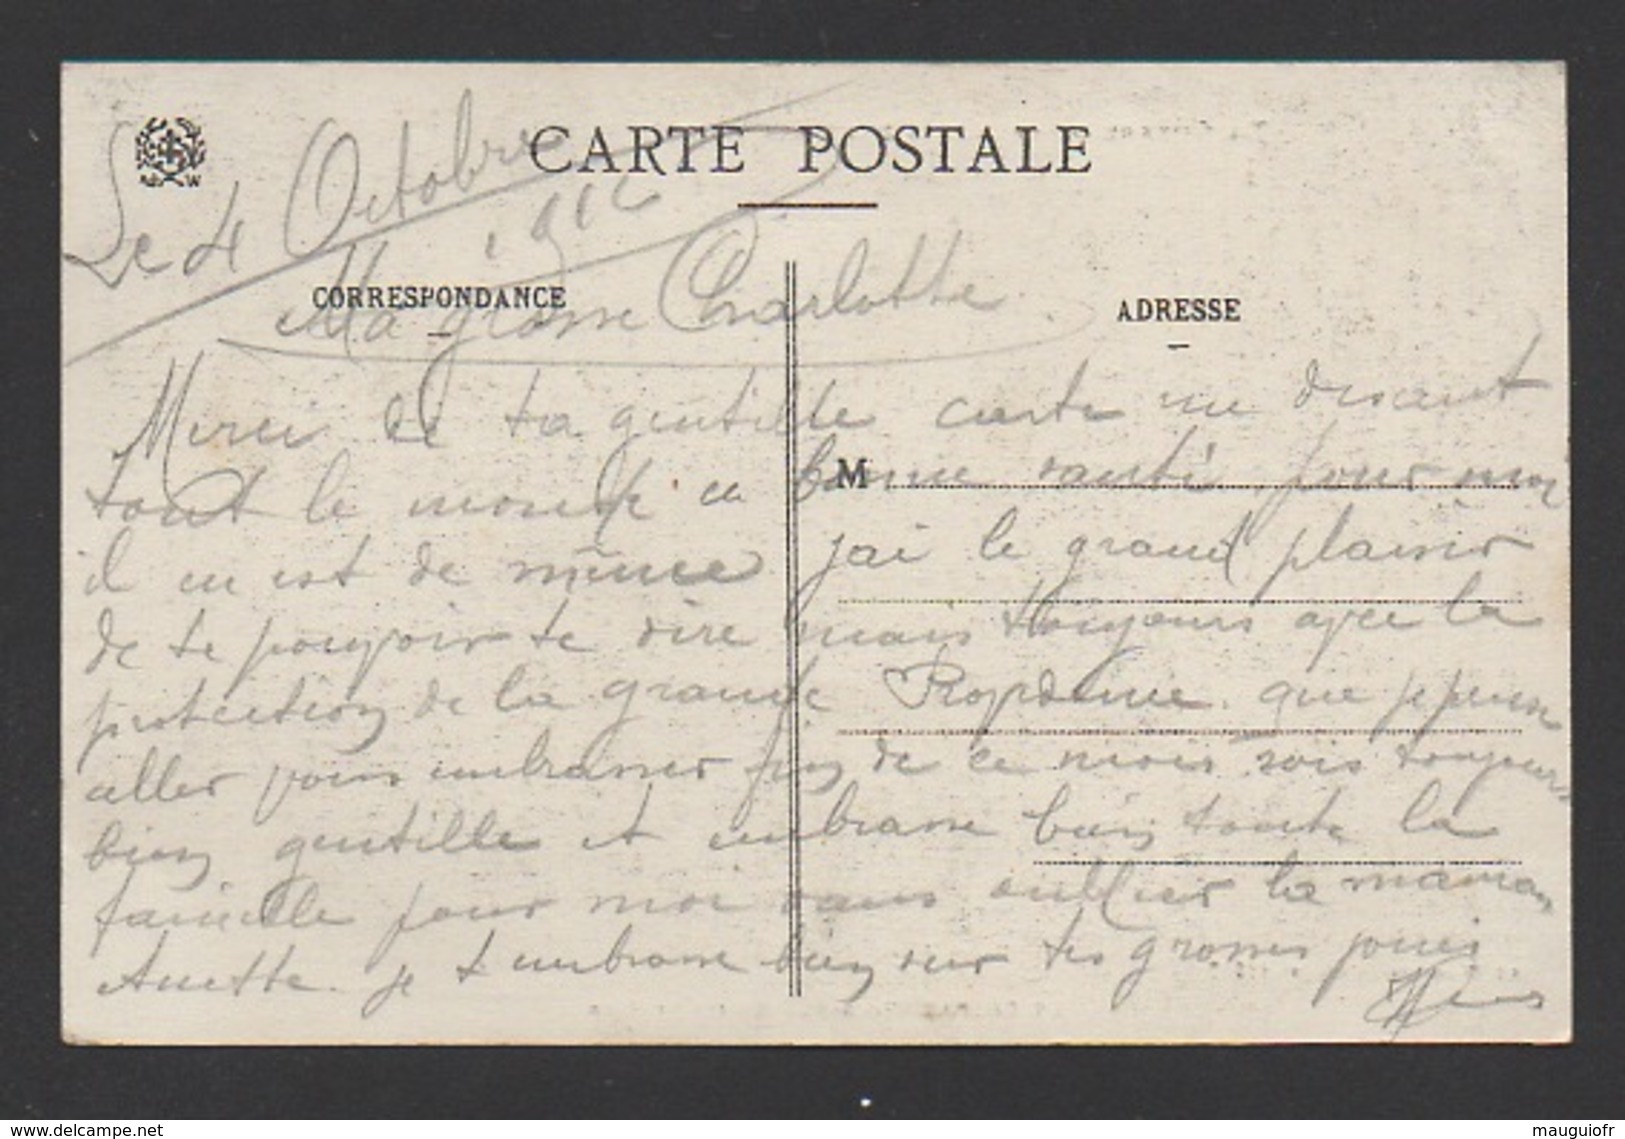 CARTE POSTALE
Le 4 Octobre
CORRESPONDANCE
ADRESSE
Ma grosse Charlotte
Merci de ta gentille carte me disant
M
tout le monde en bonne santé pour moi
il en est de même j'ai le grand plaisir
de te pouvoir te dire mais toujours avec la
protection de la grande que je pense
aller vous embrasser fin de ce mois sois toujours
bien gentille et embrasse bien toute la
famille pour moi sans oublier la maman
Anette. je t embrasse bien sur tes grosses joues
www.delcampe.net
mauguiofr